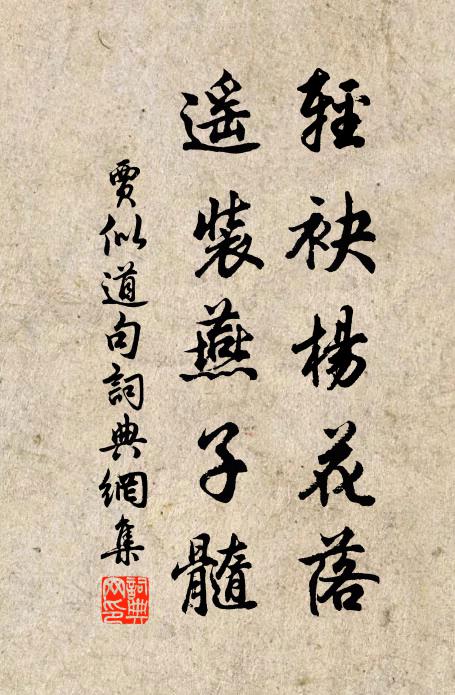 輕袂楊花落
遥裝燕子髓
賈似道句詞典網集
詞典
网印